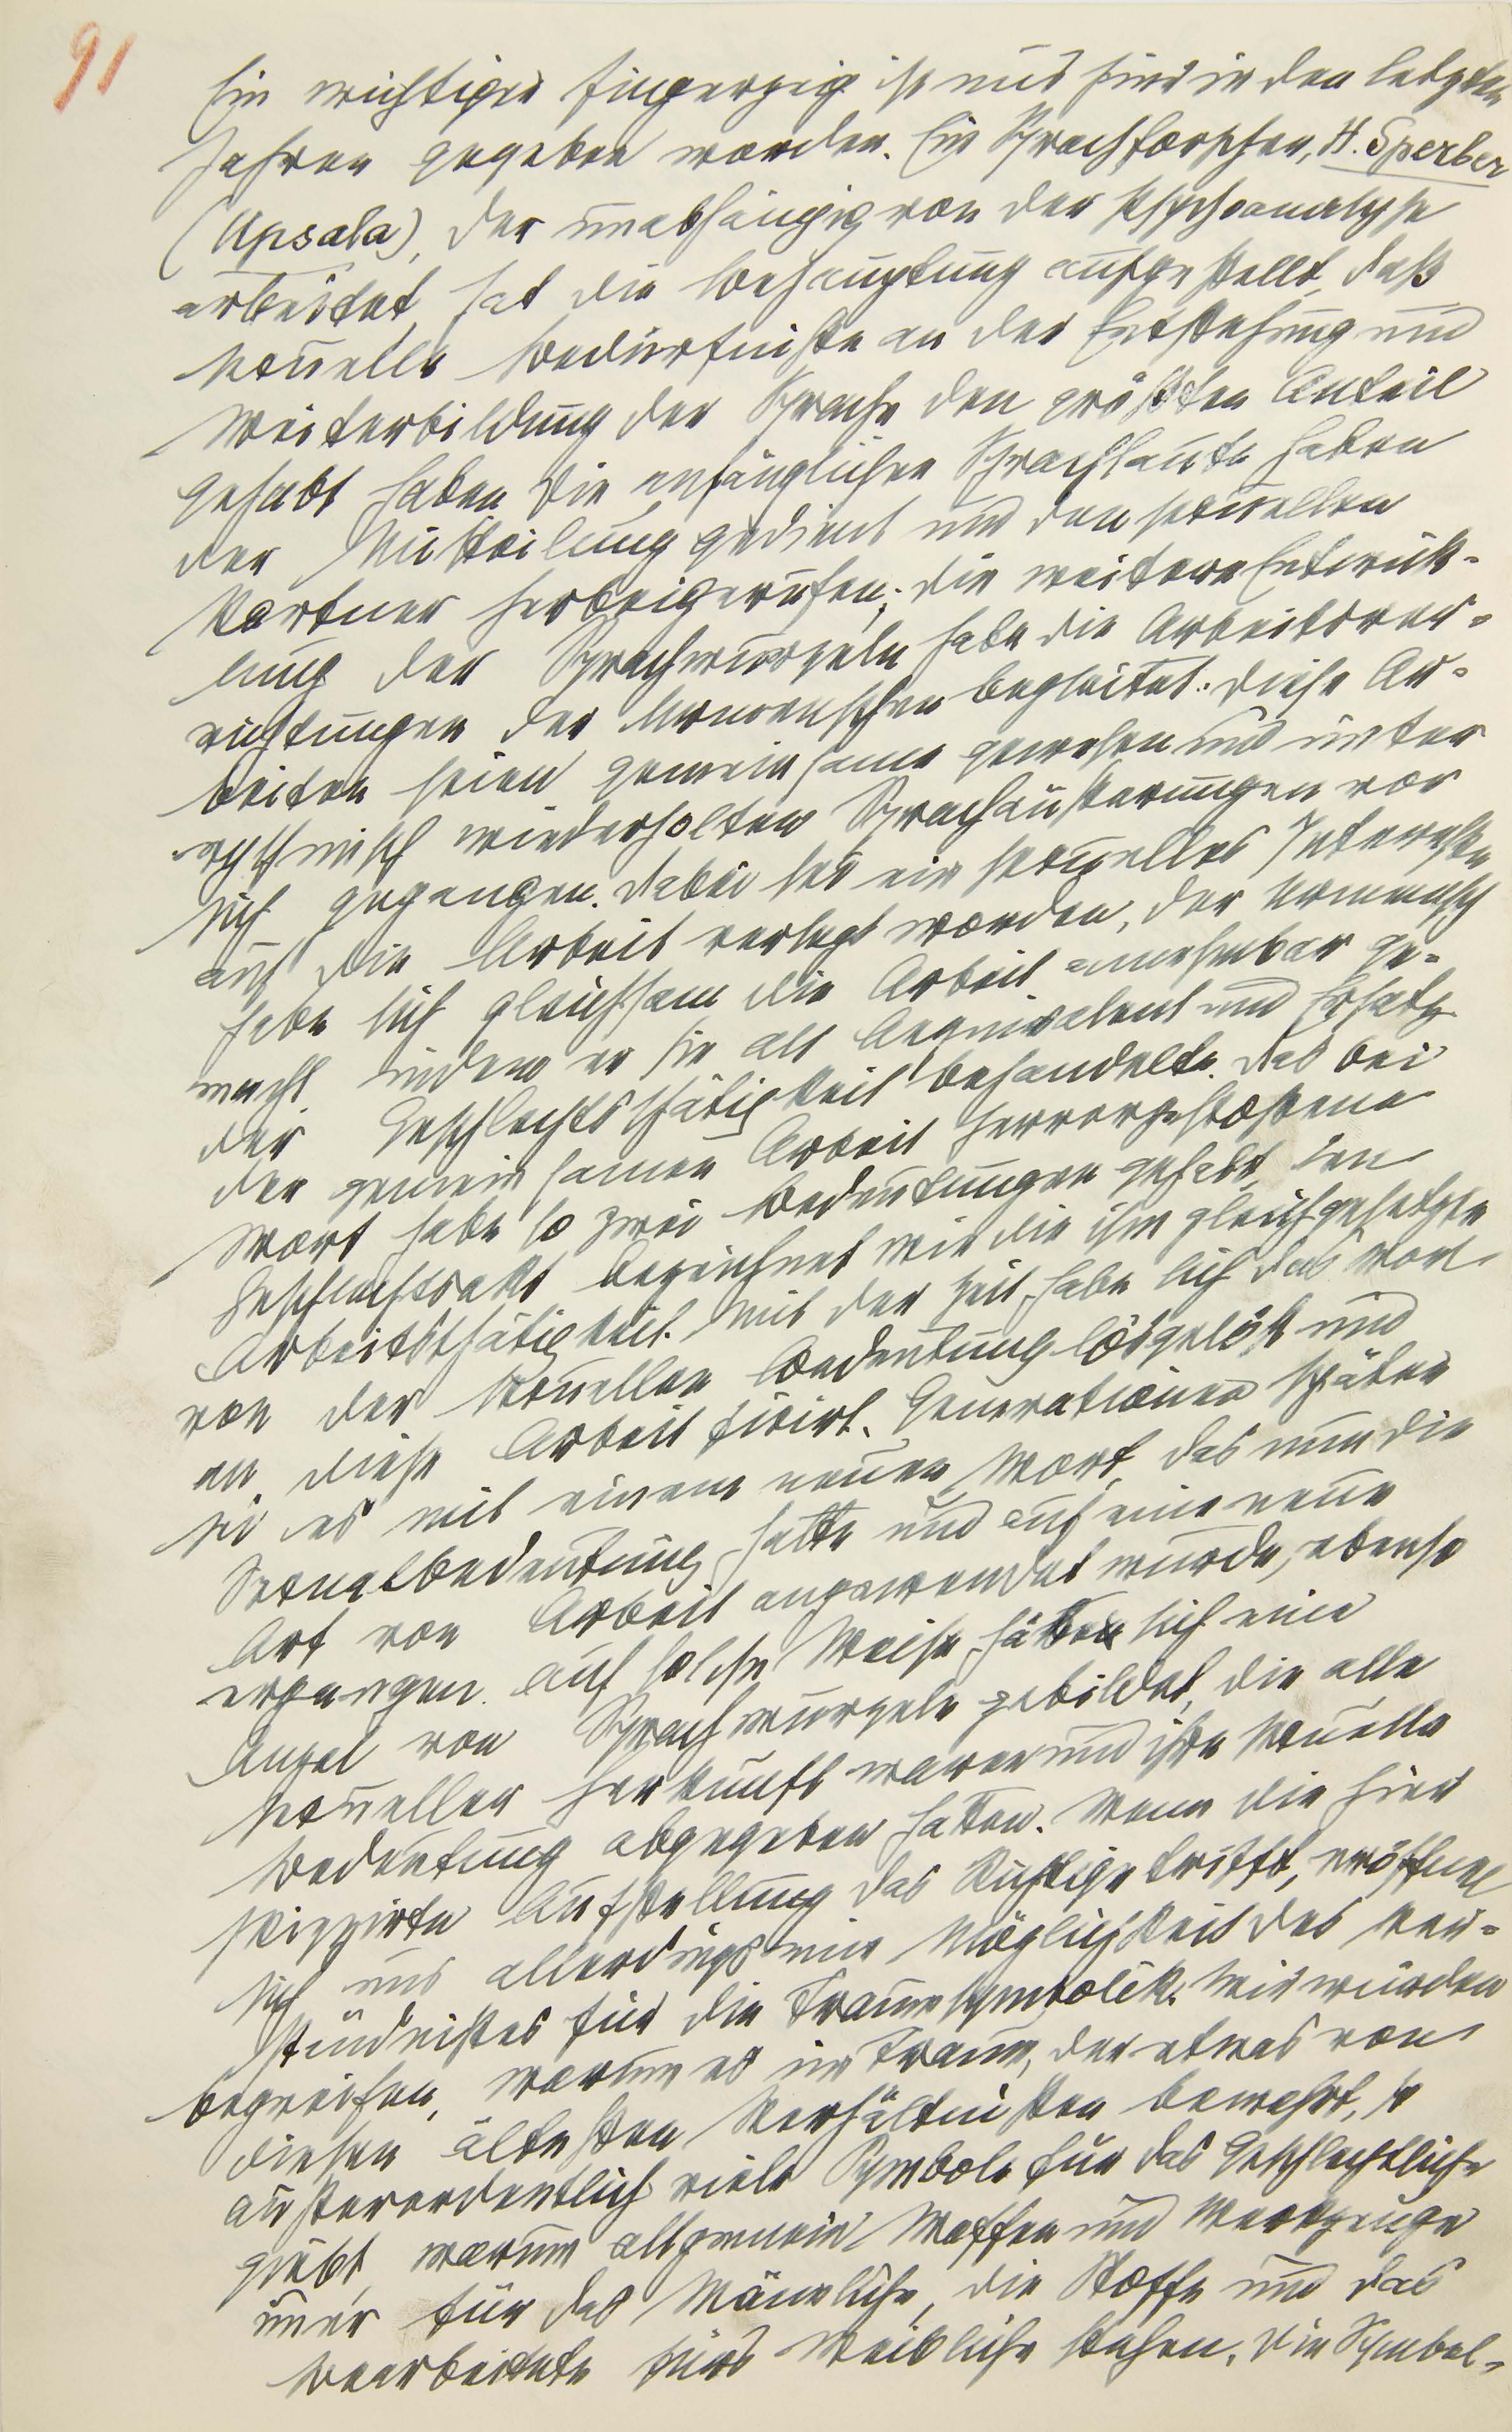 91
Ein wichtiger Fingerzeig ist uns hier in den letzten
Jahren gegeben worden. Ein Sprachforscher, H. Sperber
(Upsala), der unabhängig von der Psychoanalyse
arbeitet, hat die Behauptung aufgestellt, daß
sexuelle Bedürfnisse an der Entstehung und
Weiterbildung der Sprache den größten Anteil
gehabt haben. Die anfänglichen Sprachlaute haben
der Mitteilung gedient und den sexuellen
Partner herbeigerufen; die weitere Entwick-
lung der Sprachwurzeln habe die Arbeitsver-
richtungen der Urmenschen begleitet. Diese Ar-
beiten seien gemeinsame gewesen und unter
rythmisch wiederholten Sprachäußerungen vor
sich gegangen. Dabei sei ein sexuelles Interesse
auf die Arbeit verlegt worden, der Urmensch
habe sich gleichsam die Arbeit annehmbar ge-
macht, indem er sie als Aequivalent und Ersatz
der Geschlechtsthätigkeit behandelte. Das bei
der gemeinsamen Arbeit hervorgestoßene
Wort habe so zwei Bedeutungen gehabt, den
Geschlechtsakt bezeichnet wie die ihm gleichgesetzte
Arbeitsthätigkeit. Mit der Zeit habe sich das Wort
von der sexuellen Bedeutung losgelöst und
an diese Arbeit fixirt. Generationen später
sei es mit einem neuen Wort, das nun die
Sexualbedeutung hatte und auf eine neue
Art von Arbeit angewendet wurde, ebenso
ergangen. Auf solche Weise hätten sich eine
Anzal von Sprachwurzeln gebildet, die alle
sexueller Herkunft waren und ihre sexuelle
Bedeutung abgegeben hatten. Wenn die hier
skizzirte Aufstellung das Richtige trifft, eröffnet
sich uns allerdings eine Möglichkeit des Ver-
ständnißes für die Traumsymbolik. Wir würden
begreifen, warum es im Traum, der etwas von
diesen ältesten Verhältnißen bewahrt, so
außerordentlich viele Symbole für das Geschlechtliche
giebt, warum allgemein Waffen und Werkzeuge
imer für das Mänliche, die Stoffe und das
Bearbeitete fürs Weibliche stehen. Die Symbol-